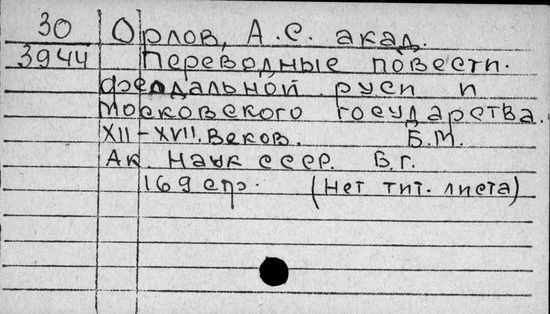 30 Орлов, А.С. акад.
3944 Переводные повести.
феодальной руси и
московского государства.
XII-XVII. веков. Б.М.
Ак. наук СССР. Б.г.
169 стр. (Нет тит. листа)